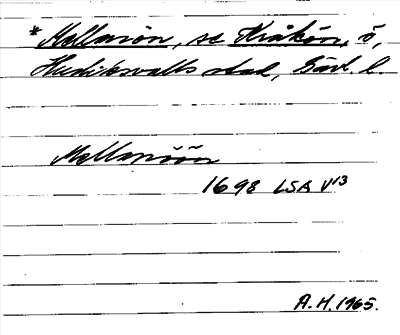 * Mellanön, se Kråkön, ö,
Hudiksvalls stad, Gävl. l.
Mellanöön
1698 LSA V13
A.H. 1965.